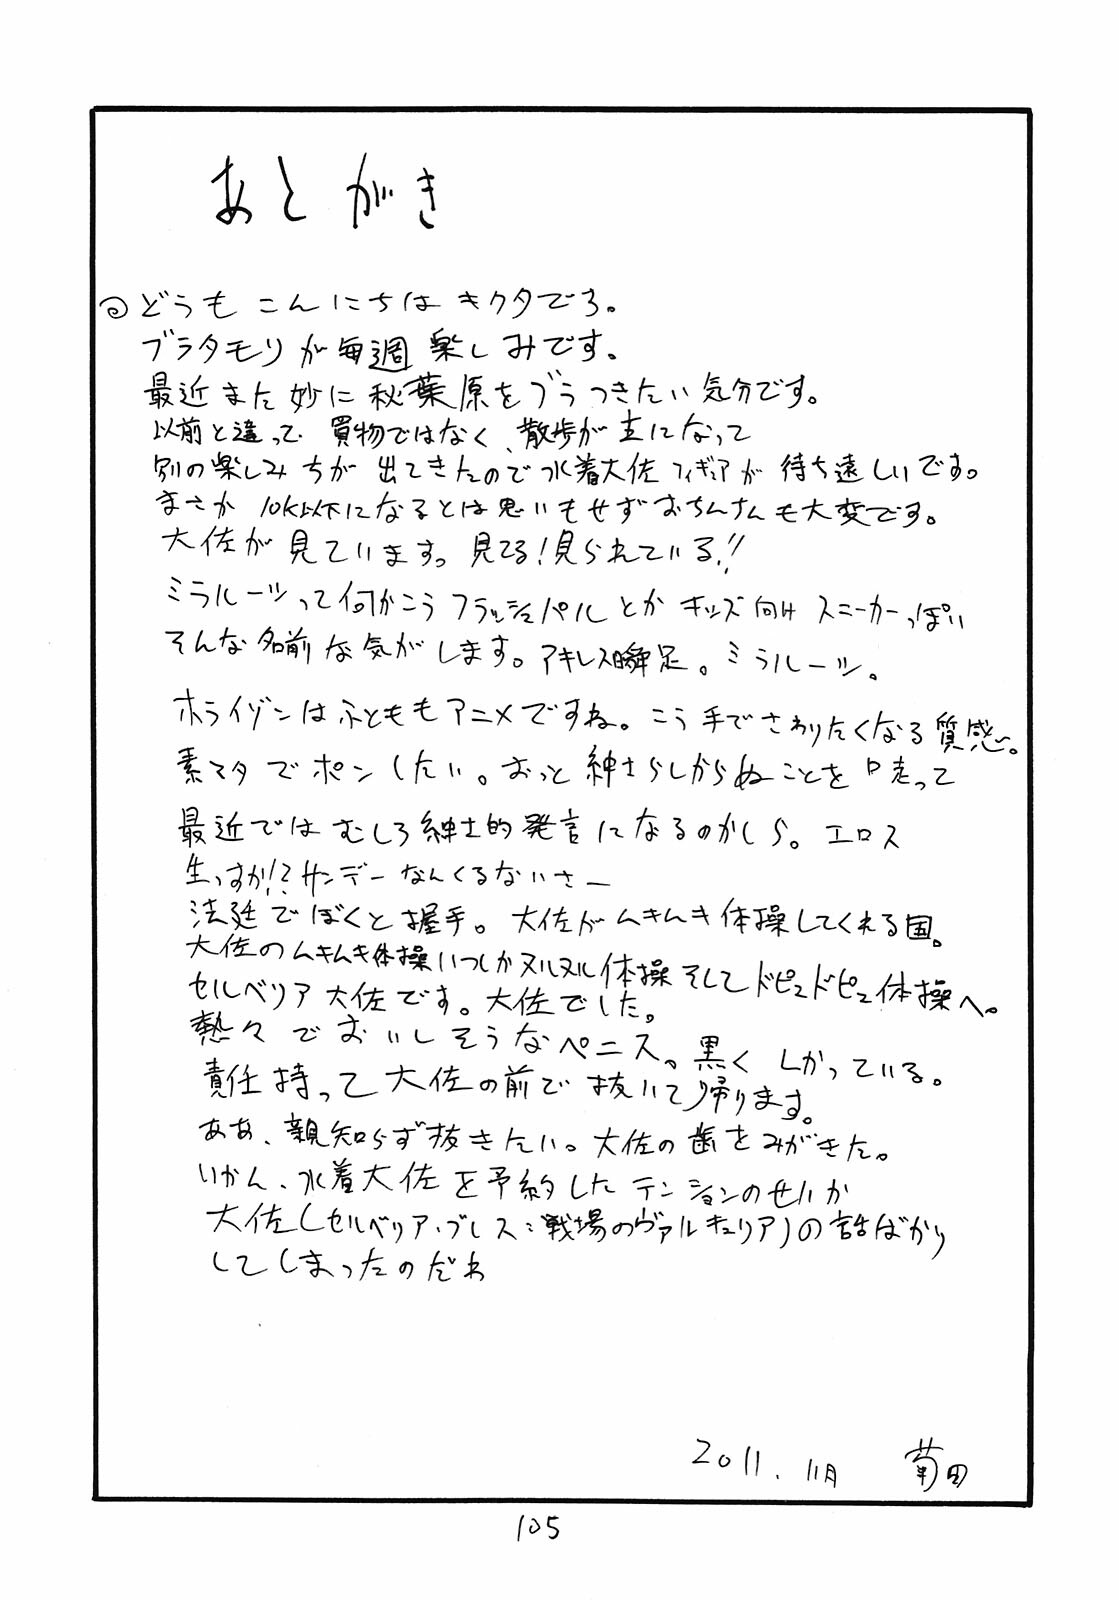 あとがき
どうも こんにちは キクタでろ。
ブラタモリが毎週 楽しみです。
最近また妙に秋葉原をブラつきたい気分です。
以前と違って 買物ではなく、散歩が主になって
別の楽しみ方が出てきたので水着大佐フィギュアが 待ち遠しいです。
まさか 10K以下になるとは思いもせずおちんちんも大変です。
大佐が見ています。見てる!見られている!!
ミラルーツって何かこう フラッシュパルとか キッズ向け スニーカーっぽい
そんな名前な気がします。アキレス瞬足。ミラルーツ。
ホライゾンはふとももアニメですね。こう手でさわりたくなる質感。
素マタでポンしたい。おっと紳士らしからぬことを口走って
最近ではむしろ紳士的発言になるのかしら。エロス
生っすか!?サンデーなんくるないさー
法廷でぼくと握手。大佐がムキムキ体操してくれる国。
大佐のムキムキ体操いつしかヌルヌル体操そしてドピュドピュ体操へ。
セルベリア大佐です。大佐でした。
熱々でおいしそうなペニス。黒くしかっている。
責任持って大佐の前で抜いて帰ります。
ああ、親知らず抜きたい。大佐の歯をみがきた。
いかん、水着大佐を予約したテンションのせいか
大佐(セルベリア・ブレス:戦場のヴァルキュリア)の話ばかり
してしまったのだわ
2011.11月 菊田
105